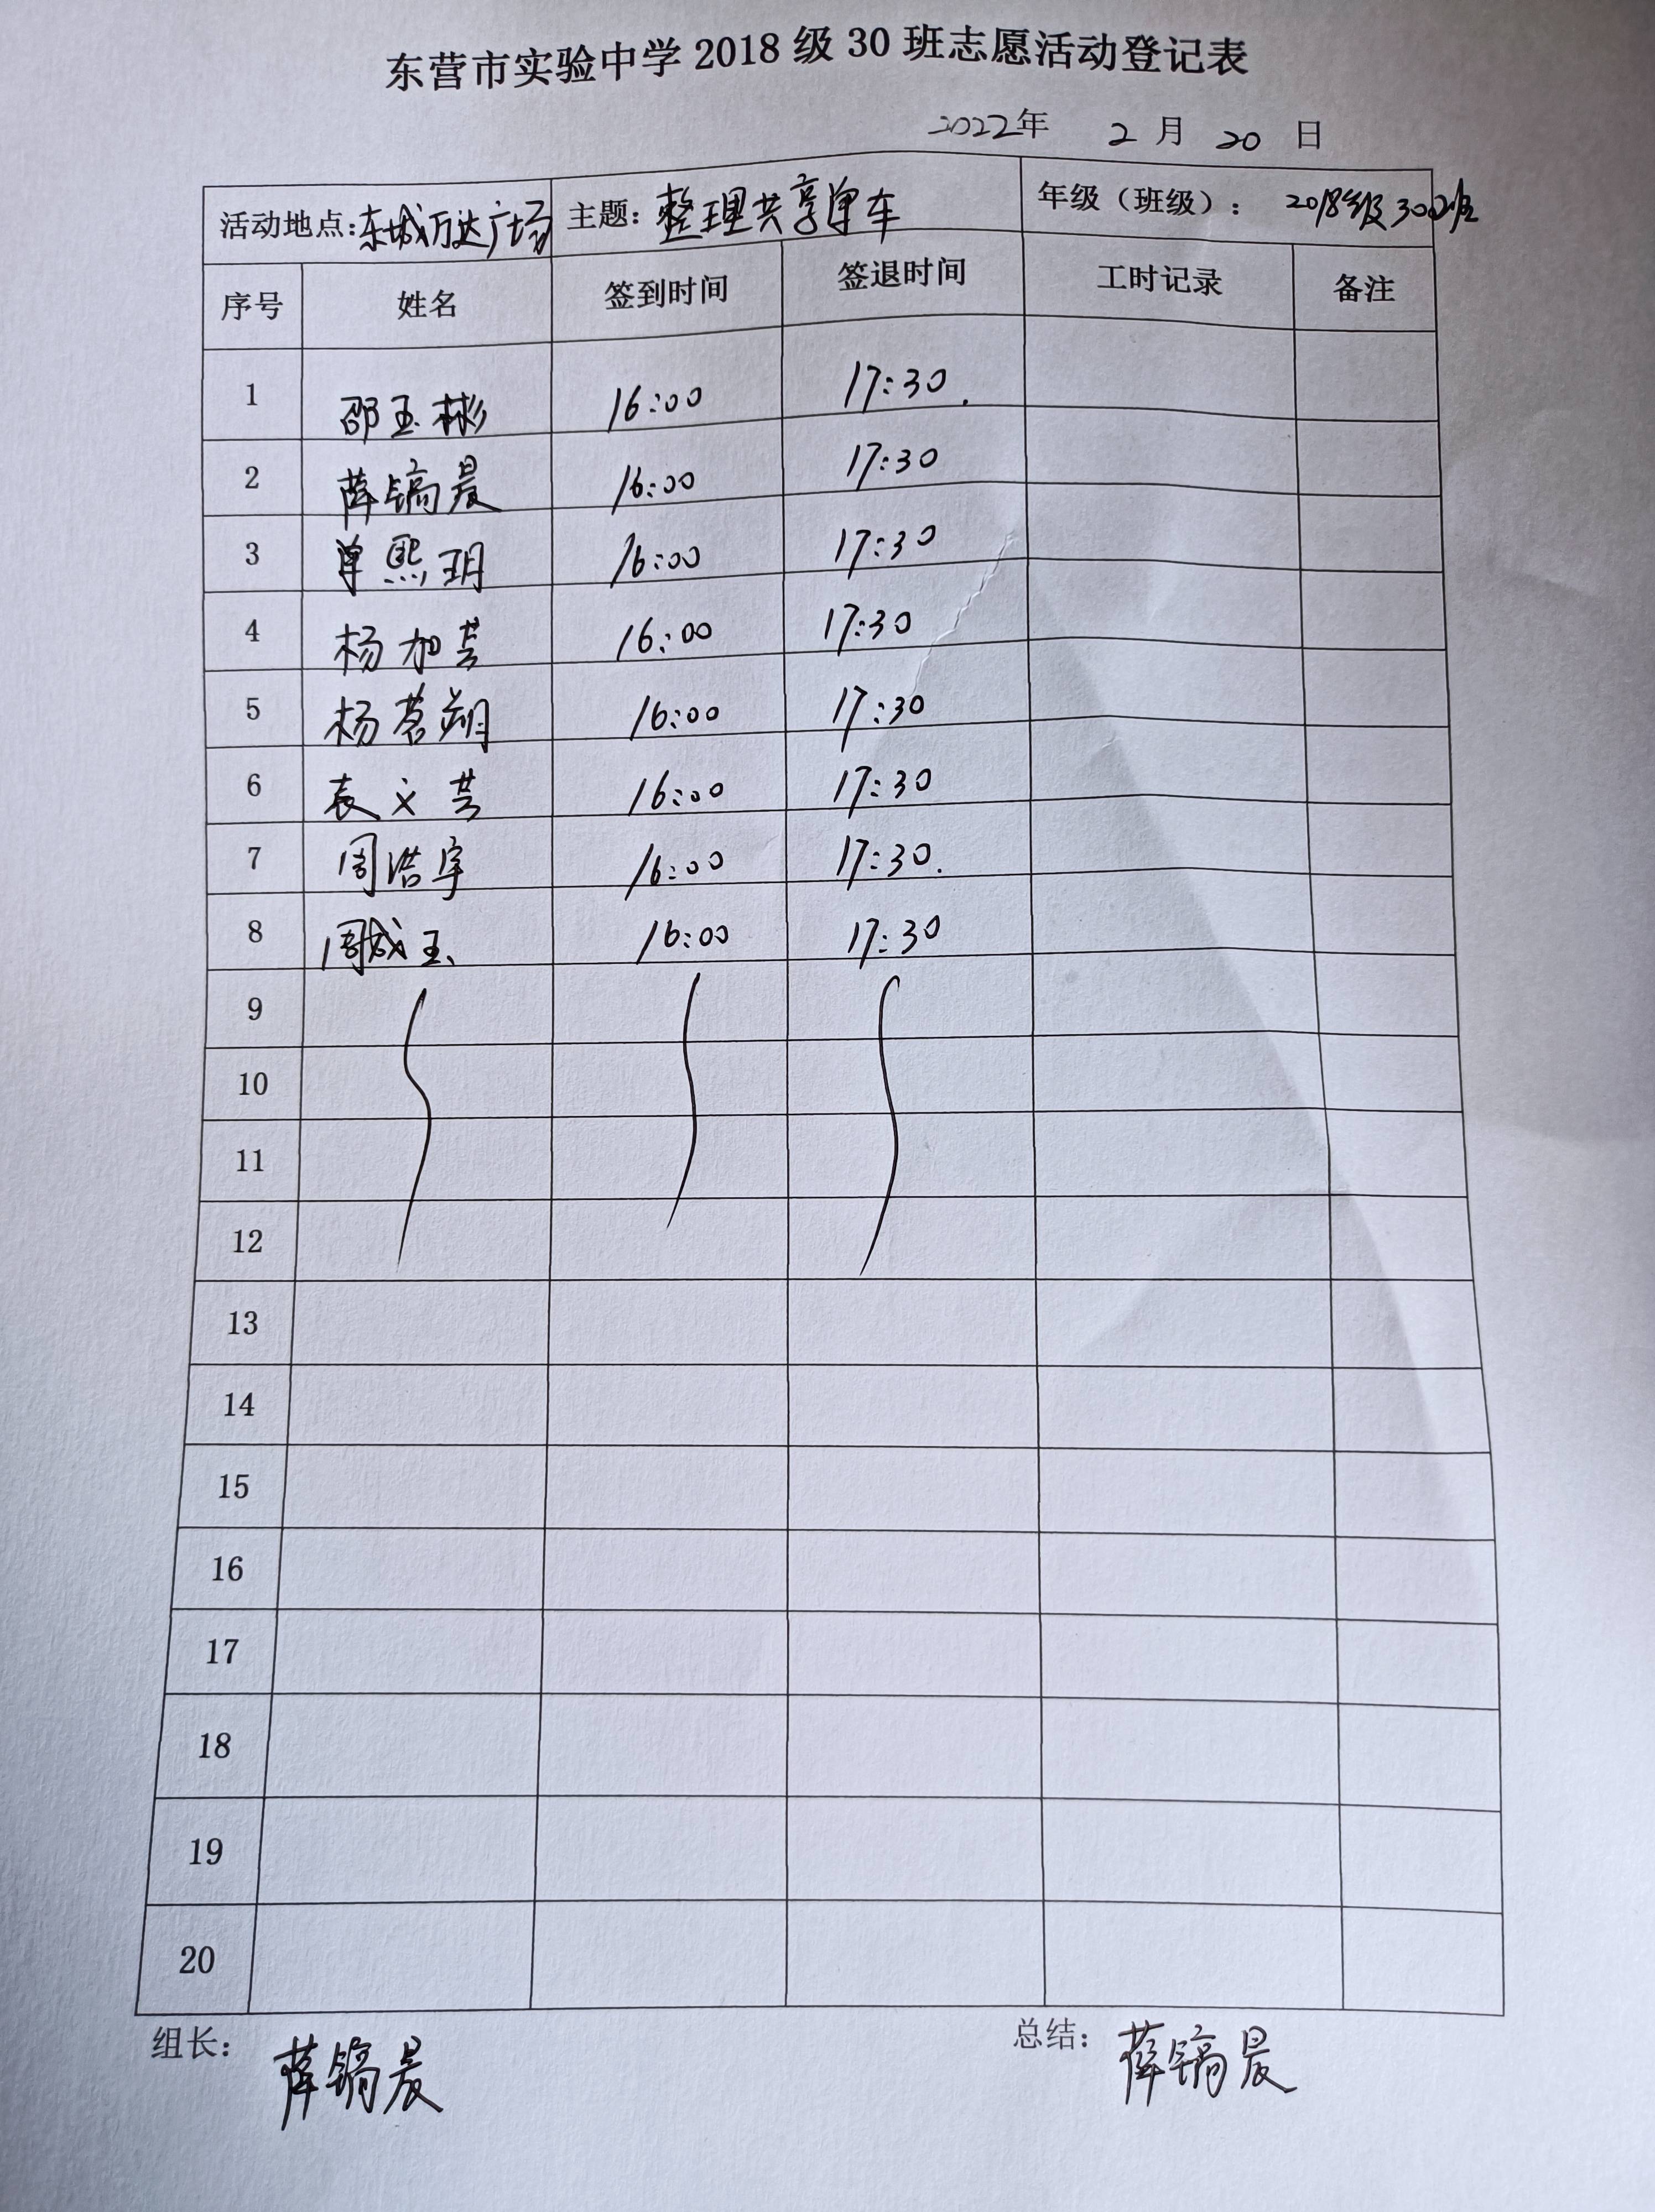 东营市实验中学2018级30班志愿活动登记表
2022年 2月20日
活动地点:东城万达广场 主题:整理共享单车 年级（班级）: 2018级30班
序号 姓名 签到时间 签退时间 工时记录 备注
1 邵玉彬 16:00 17:30.
2 薛镐晨 16:00 17:30
3 单熙玥 16:00 17:30
4 杨加芸 16:00 17:30
5 杨茗翔 16:00 17:30
6 袁义芸 16:00 17:30
7 周浩宇 16:00 17:30.
8 周成玉 16:00 17:30
9
10
11
12
13
14
15
16
17
18
19
20
组长: 薛镐晨 总结: 薛镐晨